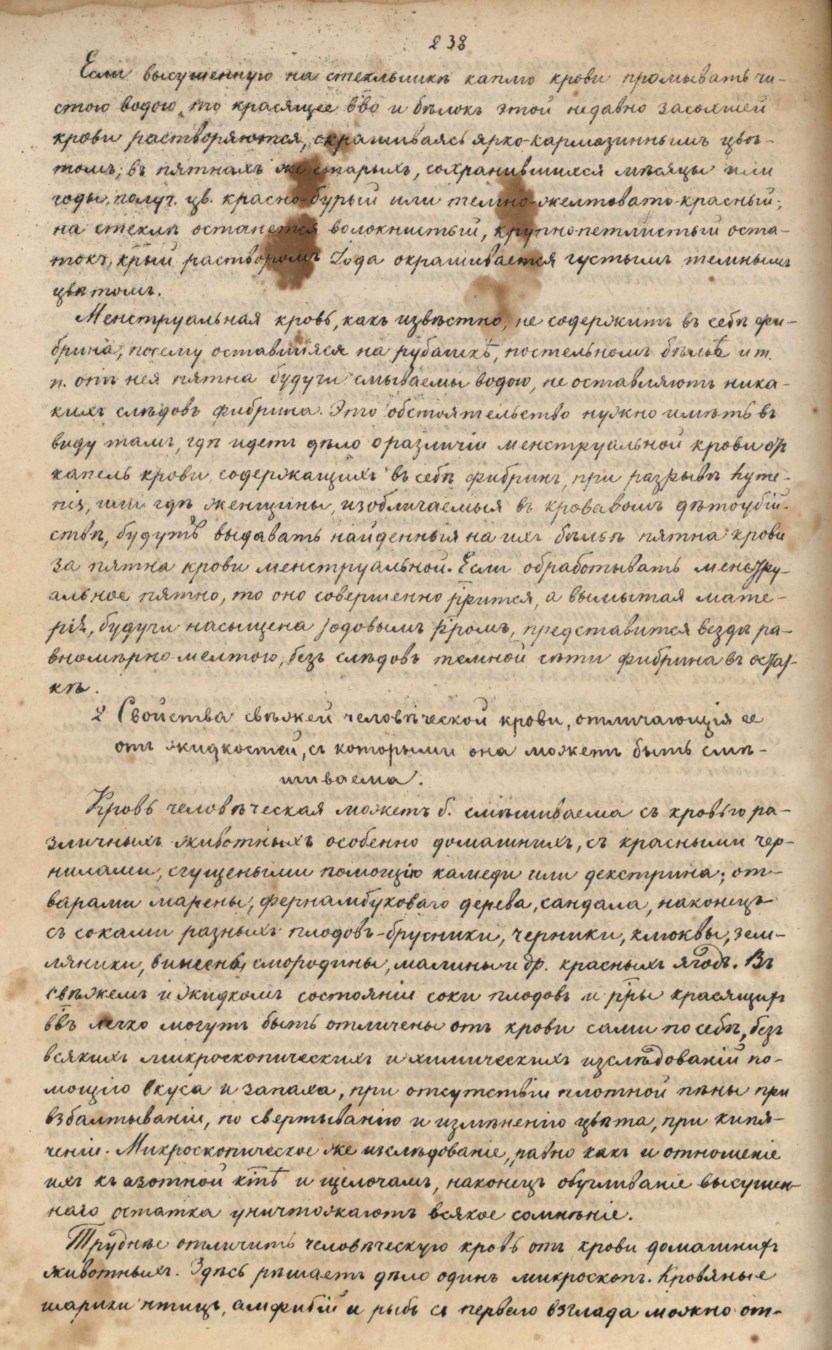 238
Если высушенную на стеклышкѣ каплю крови промывать чи-
стою водою, то красящее вво и бѣлокъ этой недавно засохшей
крови растворяются, окрашиваясь ярко-кармазиннымъ цвѣ-
томъ; въ пятнахъ же старыхъ, сохранившихся мѣсяцы или
годы, получ. цв. красно-бурый или темно-желтовато-красный;
на стеклѣ останется волокнистый, крупнопетлистый оста-
токъ, крый растворомъ Іода окрашивается густымъ темнымъ
цвѣтомъ.
Менструальная кровь, какъ извѣстно, не содержитъ въ себѣ фи-
брина, посему оставшіяся на рубашкѣ, постельномъ бѣльѣ и т.
п. отъ нея пятна будучи смываемы водою, не оставляютъ ника-
кихъ слѣдовъ фибрина. Это обстоятельство нужно имѣть въ
виду тамъ, гдѣ идетъ дѣло о различіи менструальной крови отъ
капель крови, содержащихъ въ себѣ фибринъ, при разрывѣ hyme-
nis, или гдѣ женщины, изобличаемыя въ кровавомъ дѣтоубій-
ствѣ, будутъ выдавать найденныя на ихъ бѣльѣ пятна крови
за пятна крови менструальной. Если обработывать менстру-
альное пятно, то оно совершенно ррится, а вымытая мате-
рія, будучи насыщена іодовымъ рромъ, представится вездѣ ра-
вномѣрно-желтою, безъ слѣдовъ темной сѣти фибрина въ остат-
кѣ.
2 Свойства свѣжей человѣческой крови, отличающія ее
отъ жидкостей, съ которыми она можетъ быть смѣ-
шиваема.
Кровь человѣческая можетъ б. смѣшиваема съ кровью ра-
зличныхъ животныхъ особенно домашнихъ, съ красными чер-
нилами, сгущеными помощію камеди или декстрина; от-
варами марены, фернамбуковаго дерева, сандала, наконецъ
съ соками разныхъ плодовъ-брусники, черники, клюквы, зем-
ляники, вишень, смородины, малины и др. красныхъ ягодъ. Въ
свѣжемъ и жидкомъ состояніи соки плодовъ и рры красящихъ
ввъ легко могутъ быть отличены отъ крови сами по себѣ, безъ
всякихъ микроскопическихъ и химическихъ изслѣдованій по-
мощію вкуса и запаха, при отсутствіи плотной пѣны при
взбалтываніи, по свертыванію и измѣненію цвѣта, при кипя-
ченіи. Микроскопическое же изслѣдованіе, равно какъ и отношеніе
ихъ къ азотной ктѣ и щелочамъ, наконецъ обугливаніе высушен-
наго остатка уничтожаютъ всякое сомнѣніе.
Труднѣе отличить человѣческую кровь отъ крови домашнихъ
животныхъ. Здѣсь рѣшаетъ дѣло одинъ микроскопъ. Кровяные
шарики птицъ, амфибій и рыбъ съ перваго взгляда можно от-